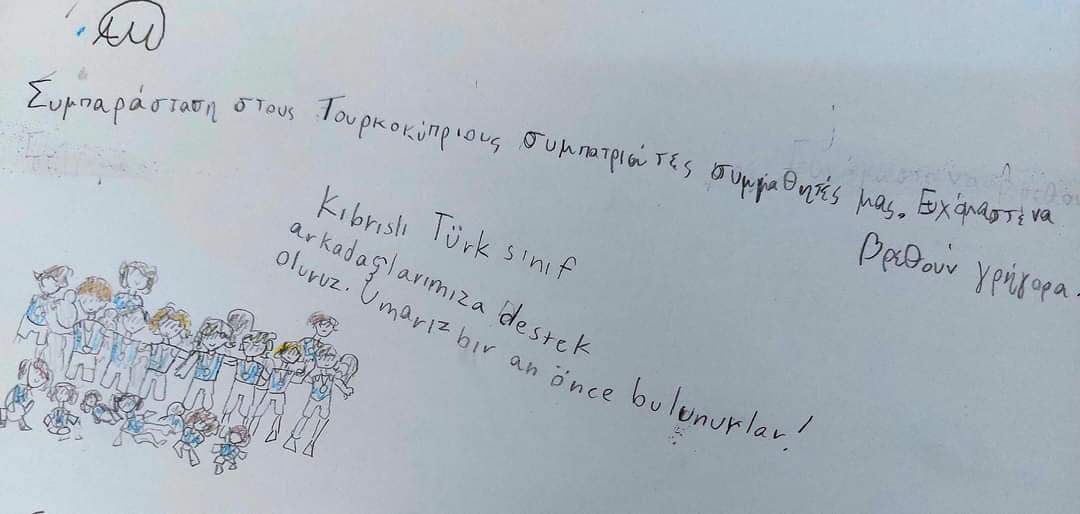 Συμπαράσταση στους Τουρκοκύπριους συμπατριώτες συμμαθητές μας. Ευχόμαστε να
βρεθούν γρήγορα.
Kıbrıslı Türk sınıf
arkadaşlarımıza destek
oluruz. Umarız bir an önce bulunurlar!